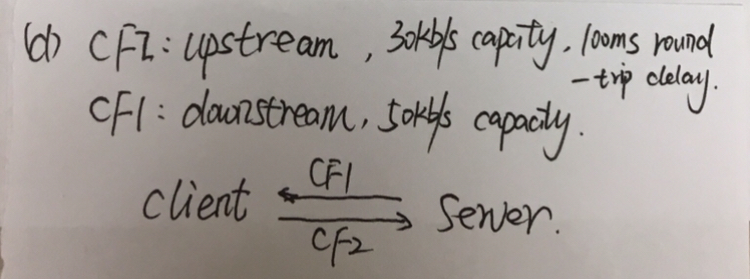 (d) CF2: upstream, 30kb/s capcity. 100ms round
-trip delay.
CF1: downstream, 50kb/s capacity.
CF1
client server.
CF2